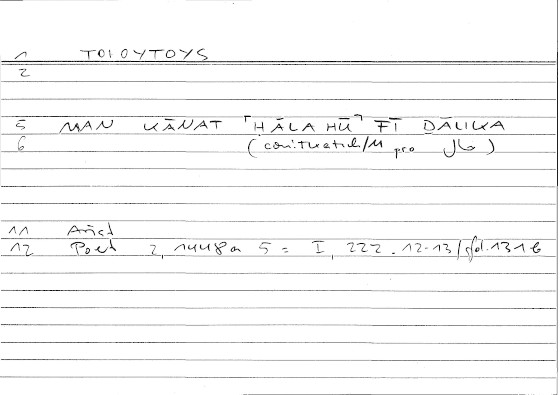 1 TOIOYTOYS
2
5 MAN KĀNAT ⌜HĀLA HŪ⌝ FĪ DĀLIKA
6 (coni. Tkatsch/M pro )
11 Arist
12 Poet 2, 1448a 5 = I, 222.12-13/fol.131b